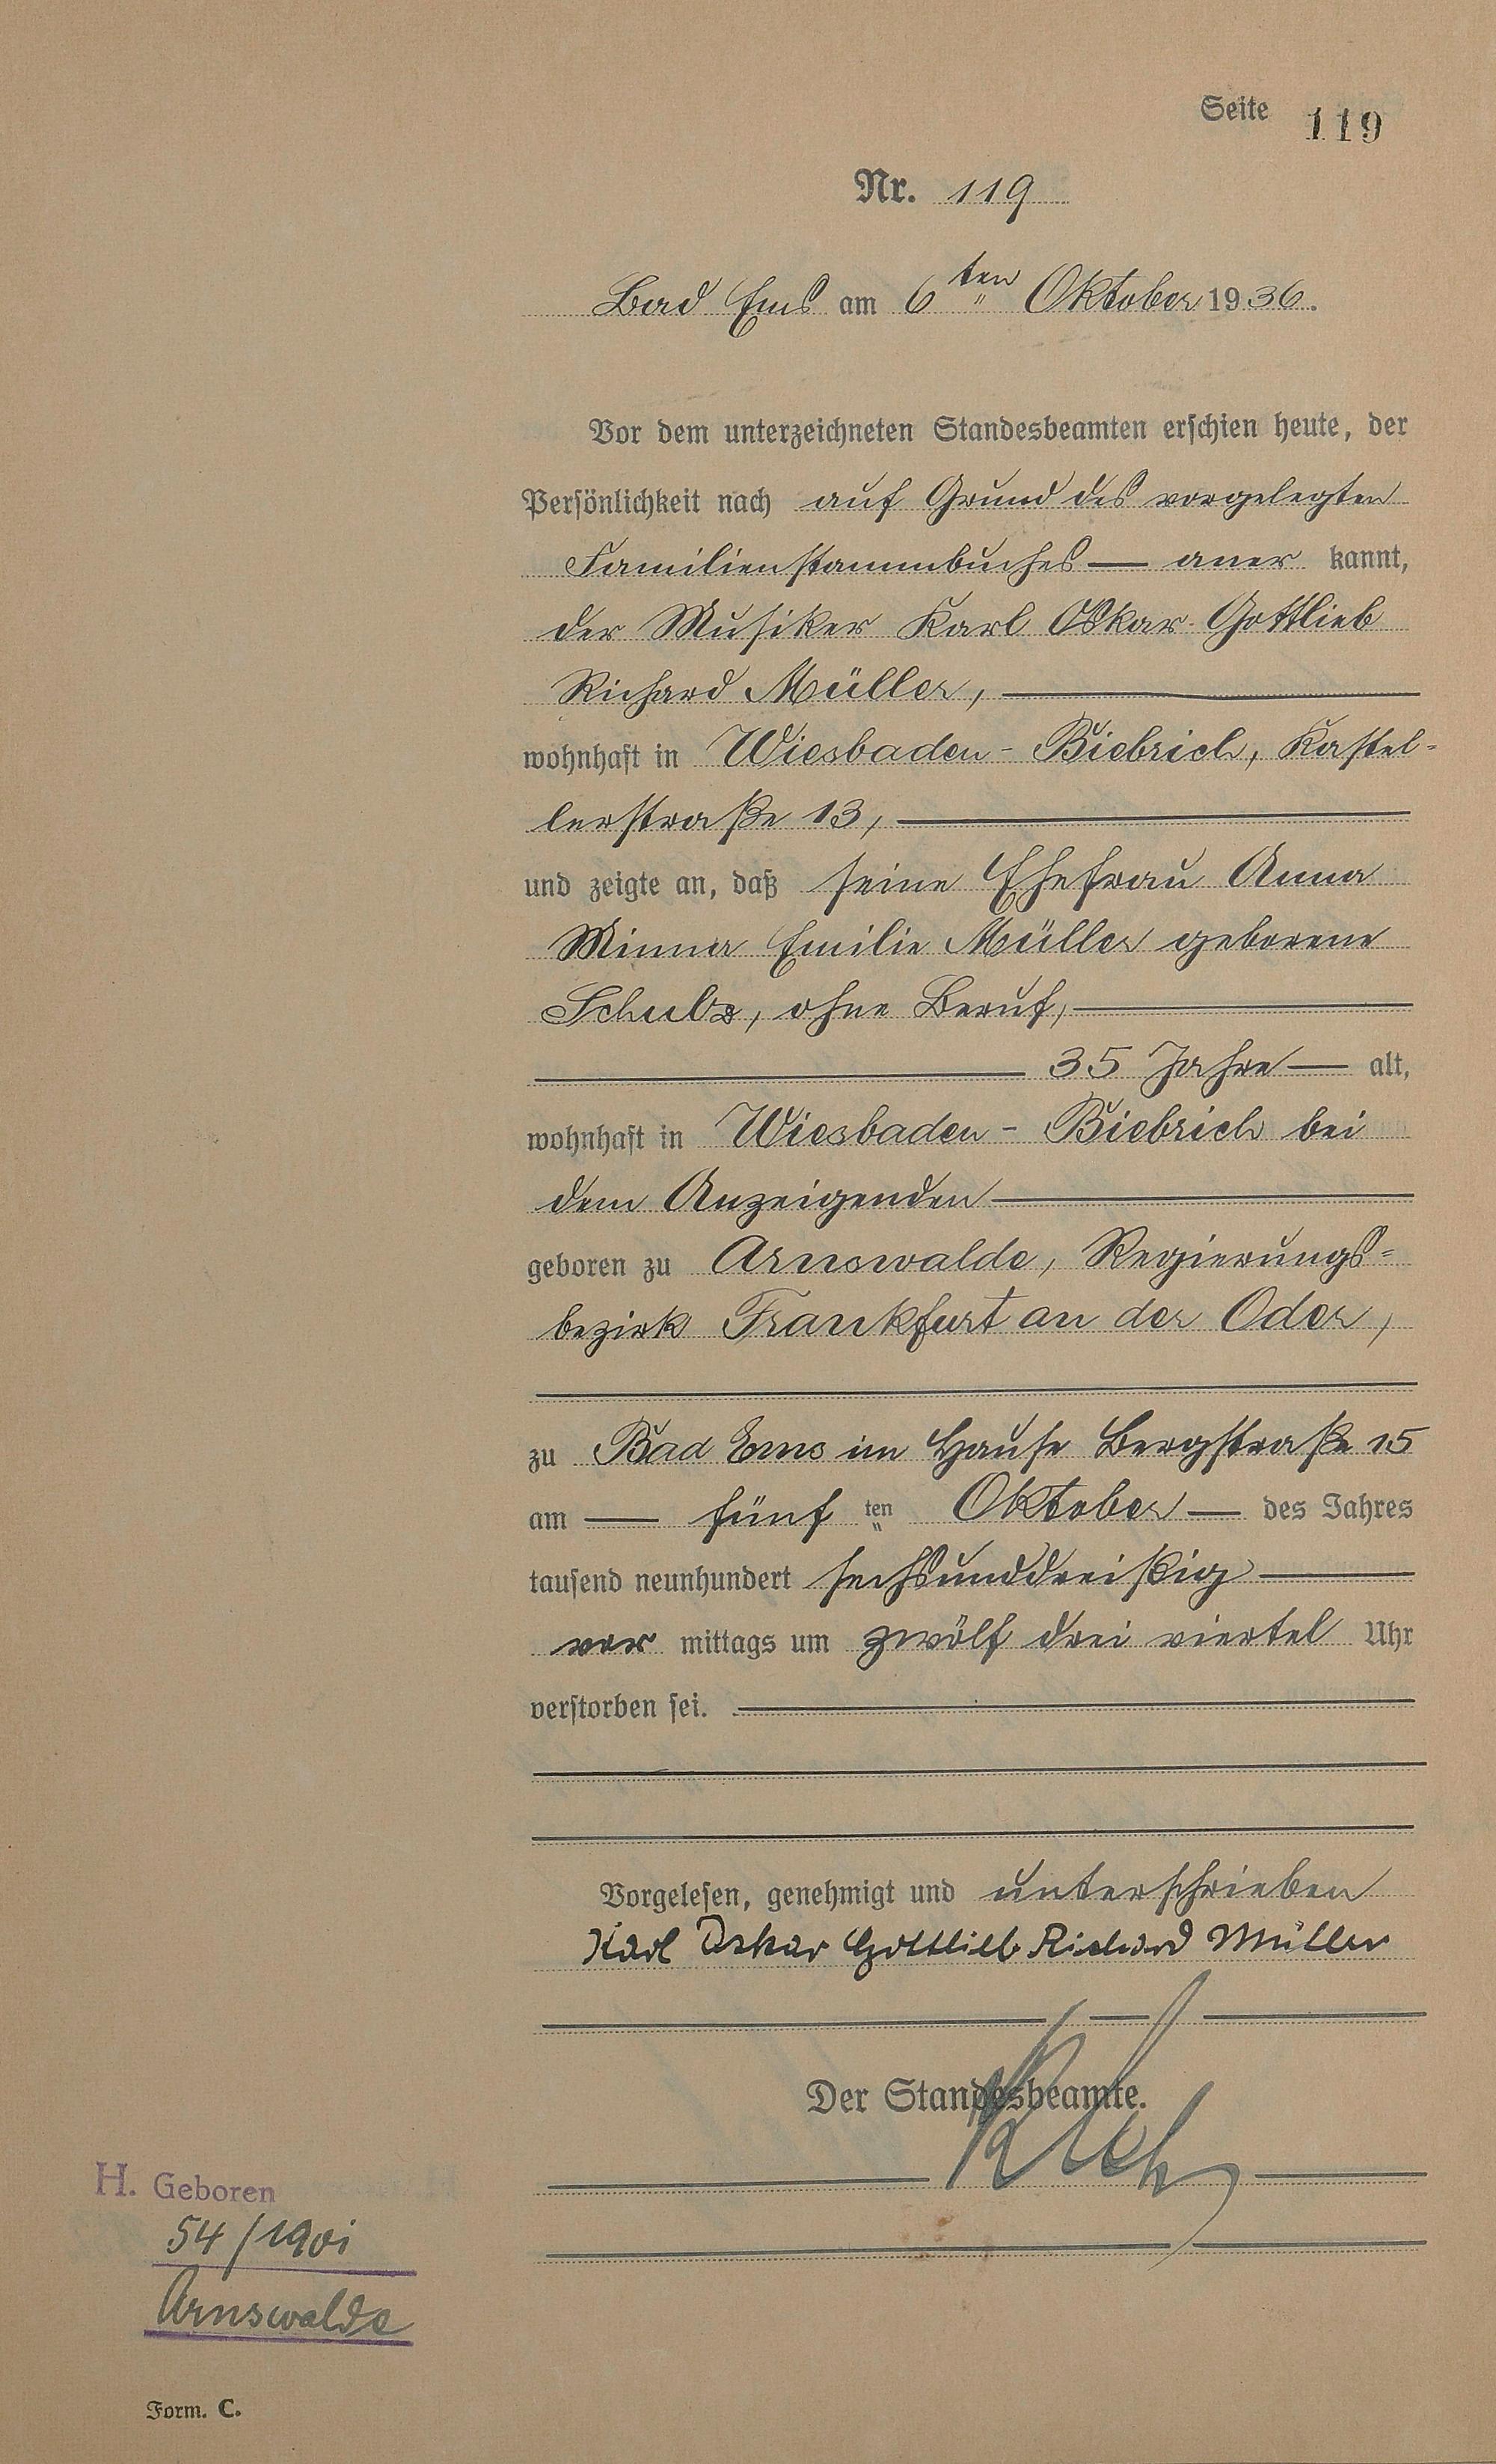 Seite 119
Nr. 119
Bad Ems am 6 ten Oktober 1936.
Vor dem unterzeichneten Standesbeamten erschien heute, der
Persönlichkeit nach auf Grund des vorgelegten
Familienstammbuches — aner kannt,
der Musiker Karl Oskar Gottlieb
Richard Müller,
wohnhaft in Wiesbaden - Biebrich, Kastel-
lerstraße 13,
und zeigte an, daß seine Ehefrau Anna
Minna Emilie Müller geborene
Schulz, ohne Beruf,
35 Jahre — alt,
wohnhaft in Wiesbaden - Biebrich bei
dem Anzeigenden
geboren zu Arnswalde, Regierungs-
bezirk Frankfurt an der Oder,
zu Bad Ems im Hause Bergstraße 15
am — fünf ten Oktober — des Jahres
tausend neunhundert sechsunddreißig
vor mittags um zwölf drei viertel Uhr
verstorben sei.
Vorgelesen, genehmigt und unterschrieben
Karl Oskar Gottlieb Richard Müller
Der Standesbeamte.
H. Geboren
54/1901
Arnswalde
Form. C.